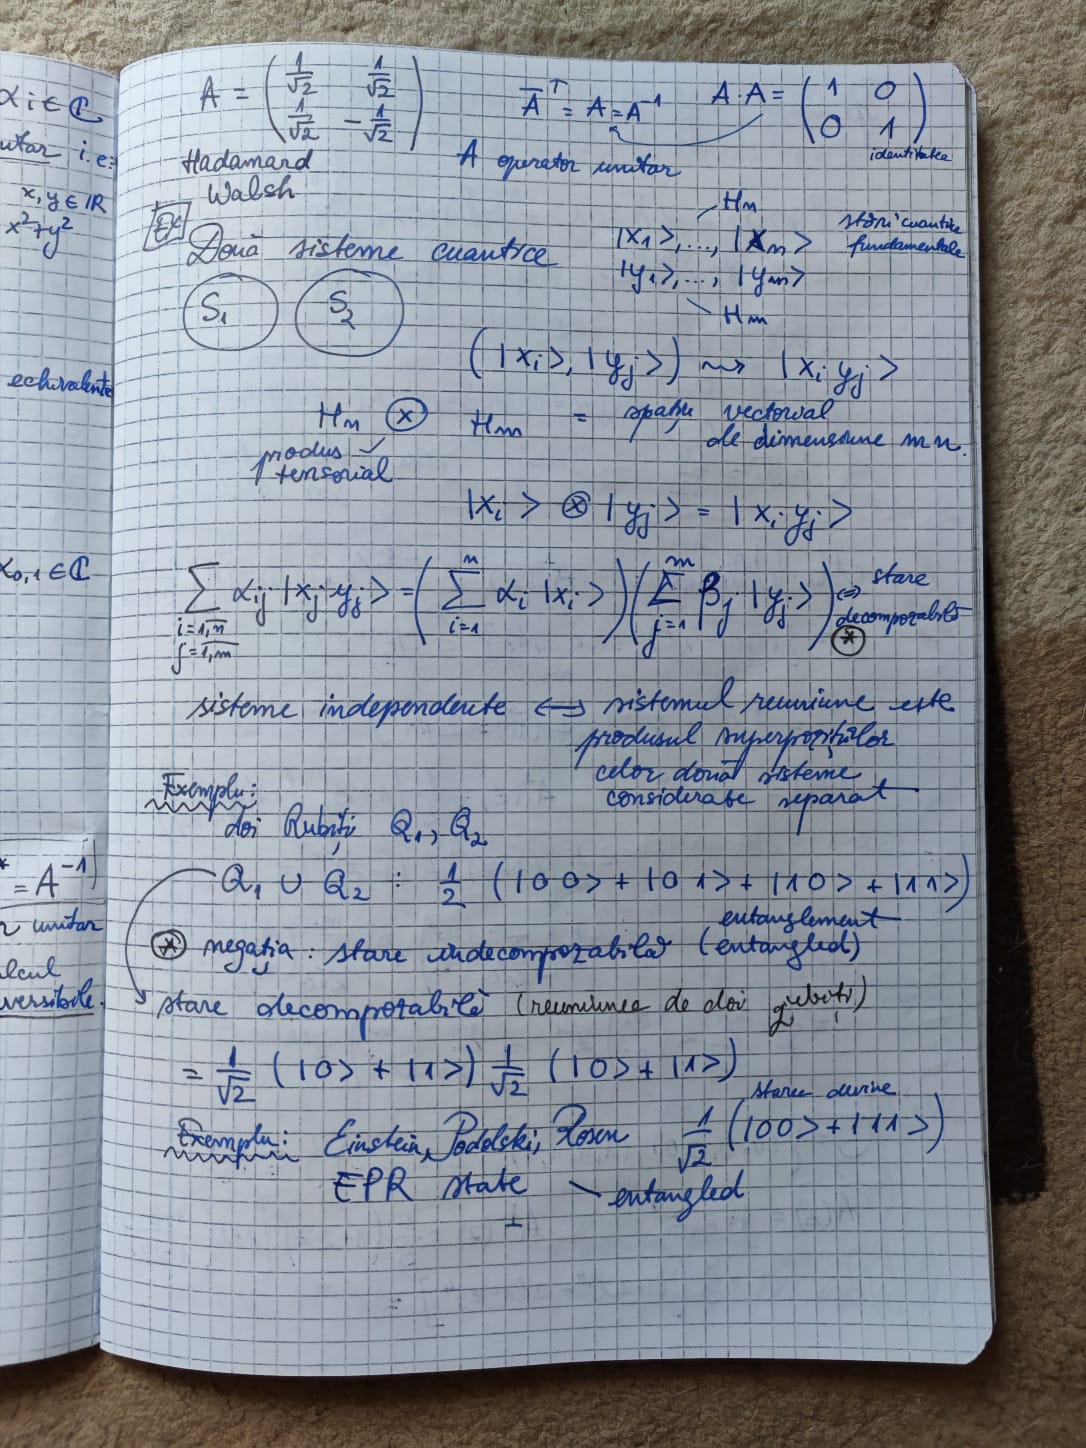 αi ∈ ℂ
unitar i.e:
x, y ∈ ℝ
x² + y²
echivalente
α0,1 ∈ ℂ
* = A⁻¹)
r unitar
lcul
versibile.
A = ( 1/√2 1/√2
1/√2 -1/√2 )
A̅ᵀ = A = A⁻¹
A·A = ( 1 0
0 1 )
identitatea
Hadamard
Walsh
A operator unitar
Două sisteme cuantice
Hn
|x1>,..., |xn>
|y1>,..., |ym>
Hm
stări cuantice
fundamentale
S1 S2
(|xi>, |yj>) ⇝ |xi yj>
Hn ⊗ Hm = spațiu vectorial
de dimensiune mn.
produs
tensorial
|xi> ⊗ |yj> = |xi yj>
∑ i=1,n̅ j=1,m̅ αij |xj yj> = ( ∑ i=1 n αi |xi> ) ( ∑ j=1 m βj |yj> ) ⇔ stare
decompozabilă
⊛
sisteme independente ⟺ sistemul reuniune este
produsul superpozițiilor
celor două sisteme
considerate separat
Exemplu:
doi Qubiți Q1, Q2
Q1 ∪ Q2 : 1/2 (|00> + |01> + |10> + |11>)
entanglement
⊛ negația: stare indecompozabilă (entangled)
stare decompozabilă (reuniunea de doi qubiți)
= 1/√2 (|0> + |1>) 1/√2 (|0> + |1>)
starea devine
Exemplu: Einstein, Podolski, Rosen 1/√2 (|00> + |11>)
EPR state entangled